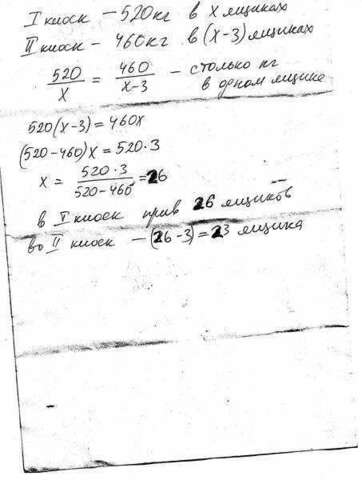 I киоск – 520 кг в х ящиках
II киоск – 460 кг в (х-3) ящиках
520/х = 460/х-3 – столько кг
в одном ящике
520(х-3) = 460х
(520-460)х = 520·3
х = 520·3/520-460 = 26
в I киоск прив 26 ящиков
во II киоск – (26-3) = 23 ящика